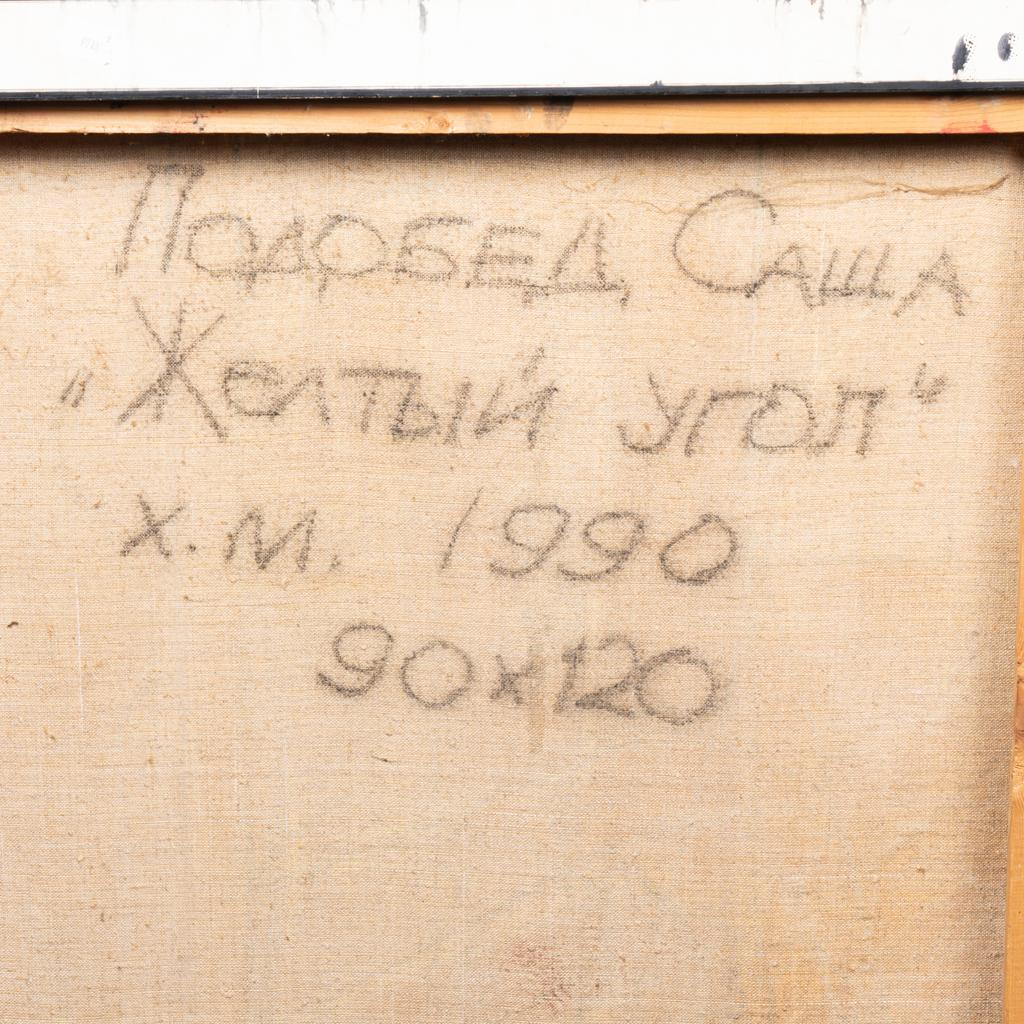 Подобед Саша
"Желтый угол"
х.м. 1990
90х120